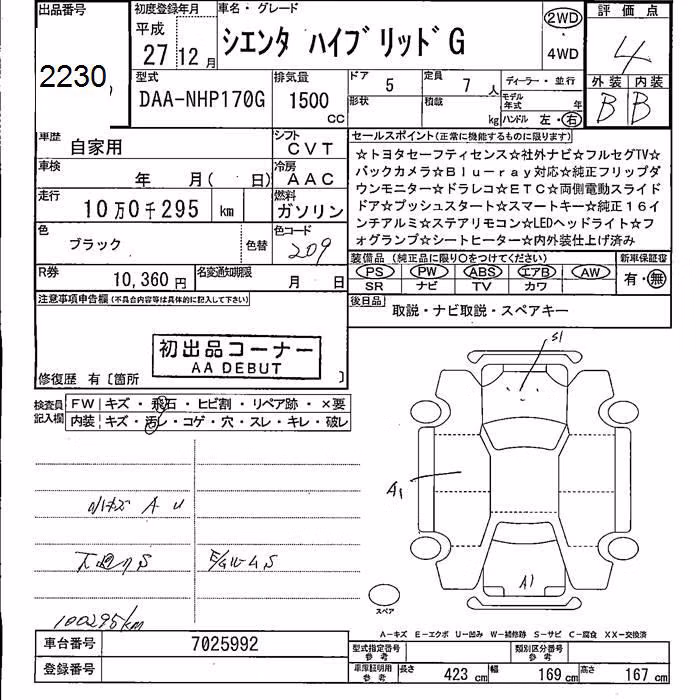 出品番号
2230
初度登録年月
平成
27 12 月
車名・グレード
シエンタ ハイブリッドG
2WD
・
4WD
評価点
4
外装 内装
B B
型式
DAA-NHP170G
排気量
1500
CC
ドア
5
定員
7 人
形状
積載
kg
ディーラー・並行
モデル年式 年
ハンドル 左・右
車歴
自家用
シフト
CVT
車検
年 月( 日)
冷房
AAC
走行
10 万0 千295 km
燃料
ガソリン
色
ブラック
色替
色コード
209
R券
10,360 円
名変通知期限
月 日
セールスポイント(正常に機能するものに限ります)
☆トヨタセーフティセンス☆社外ナビ☆フルセグTV☆
バックカメラ☆Blu-ray対応☆純正フリップダ
ウンモニター☆ドラレコ☆ETC☆両側電動スライド
ドア☆プッシュスタート☆スマートキー☆純正16イ
ンチアルミ☆ステアリモコン☆LEDヘッドライト☆フ
ォグランプ☆シートヒーター☆内外装仕上げ済み
装備品 (純正品に限り〇をつけてください)
PS PW ABS エアB AW
SR ナビ TV カワ
新車保証書
有・無
注意事項申告欄 (不具合内容等は具体的に記入して下さい)
後日品
取説・ナビ取説・スペアキー
初出品コーナー
AA DEBUT
修復歴 有〔箇所 〕
検査員記入欄
FW キズ・飛石・ヒビ割・リペア跡・×要
内装 キズ・汚レ・コゲ・穴・スレ・キレ・破レ
S1
A1
A1
小キズ A U
下廻りS
100295km
スペア
A-キズ E-エクボ U-凹み W-補修跡 S-サビ C-腐食 XX-交換済
車台番号
7025992
登録番号
型式指定番号
参考
類別区分番号
参考
車庫証明用
参考
長さ 423 cm 幅 169 cm 高さ 167 cm